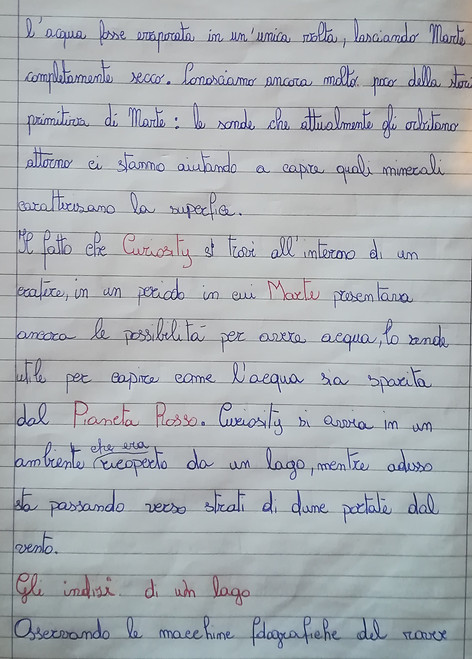 l'acqua fosse evaporata in un'unica volta, lasciando Marte
completamente secco. Conosciamo ancora molto poco della stori
primitiva di Marte: le sonde che attualmente gli orbitano
attorno ci stanno aiutando a capire quali minerali
caratterizzano la superficie.
Il fatto che Curiosity si trovi all'interno di un
cratere, in un periodo in cui Marte presentava
ancora le possibilità per avere acqua, lo rende
utile per capire come l'acqua sia sparita
dal Pianeta Rosso. Curiosity si avvia in un
che era
ambiente ricoperto da un lago, mentre adesso
sta passando verso strati di dune portate dal
vento.
Gli indizi di un lago
Osservando le macchine fotografiche del rover